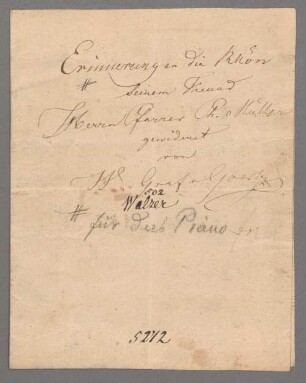 Erinnerung an die Rhön
#
seinem Freund
Herrn Pfarrer Ph. Müller
gewidmet
von
W. Graf
502
Walzer
#
für das Piano
5272